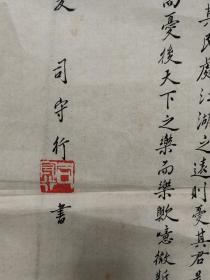 其民處江湖之遠則憂其君是
而憂後天下之樂而樂歟噫微斯
司守行
書